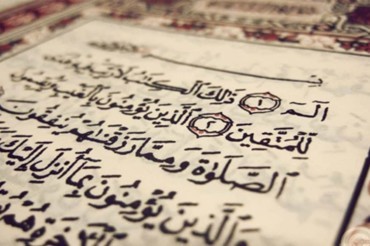 الٓمٓ ١ ذَٰلِكَ ٱلۡكِتَٰبُ لَا رَيۡبَۛ فِيهِۛ هُدٗى
لِّلۡمُتَّقِينَ ٢ ٱلَّذِينَ يُؤۡمِنُونَ بِٱلۡغَيۡبِ وَيُقِيمُونَ
ٱلصَّلَوٰةَ وَمِمَّا رَزَقۡنَٰهُمۡ يُنفِقُونَ
وَٱلَّذِينَ يُؤۡمِنُونَ بِمَآ أُنزِلَ إِلَيۡكَ